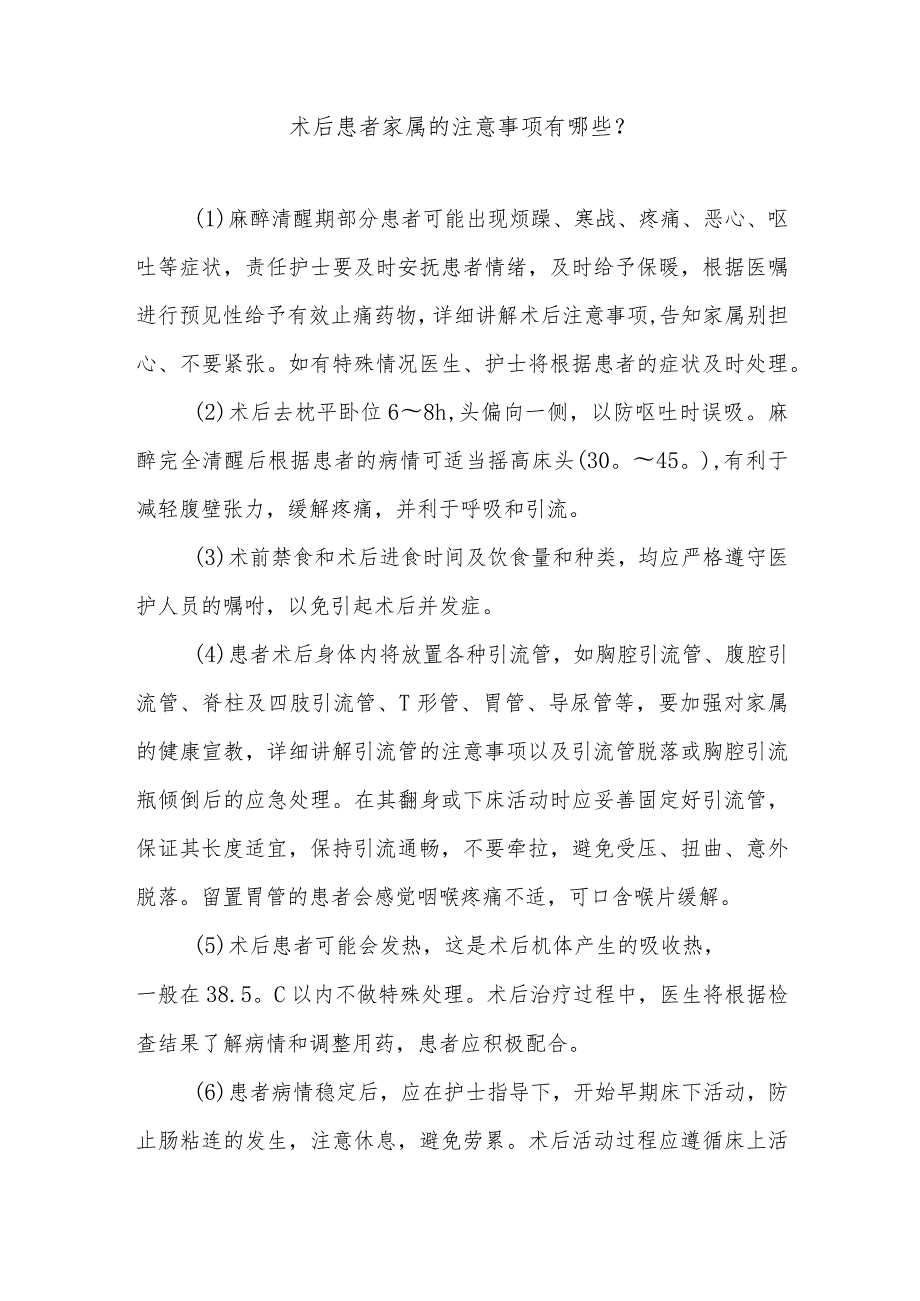 术后患者家属的注意事项有哪些？
(1)麻醉清醒期部分患者可能出现烦躁、寒战、疼痛、恶心、呕
吐等症状，责任护士要及时安抚患者情绪，及时给予保暖，根据医嘱
进行预见性给予有效止痛药物，详细讲解术后注意事项,告知家属别担
心、不要紧张。如有特殊情况医生、护士将根据患者的症状及时处理。
(2)术后去枕平卧位6～8h,头偏向一侧，以防呕吐时误吸。麻
醉完全清醒后根据患者的病情可适当摇高床头(30。～45。),有利于
减轻腹壁张力，缓解疼痛，并利于呼吸和引流。
(3)术前禁食和术后进食时间及饮食量和种类，均应严格遵守医
护人员的嘱咐，以免引起术后并发症。
(4)患者术后身体内将放置各种引流管，如胸腔引流管、腹腔引
流管、脊柱及四肢引流管、T形管、胃管、导尿管等，要加强对家属
的健康宣教，详细讲解引流管的注意事项以及引流管脱落或胸腔引流
瓶倾倒后的应急处理。在其翻身或下床活动时应妥善固定好引流管，
保证其长度适宜，保持引流通畅，不要牵拉，避免受压、扭曲、意外
脱落。留置胃管的患者会感觉咽喉疼痛不适，可口含喉片缓解。
(5)术后患者可能会发热，这是术后机体产生的吸收热，
一般在38.5。C以内不做特殊处理。术后治疗过程中，医生将根据检
查结果了解病情和调整用药，患者应积极配合。
(6)患者病情稳定后，应在护士指导下，开始早期床下活动，防
止肠粘连的发生，注意休息，避免劳累。术后活动过程应遵循床上活